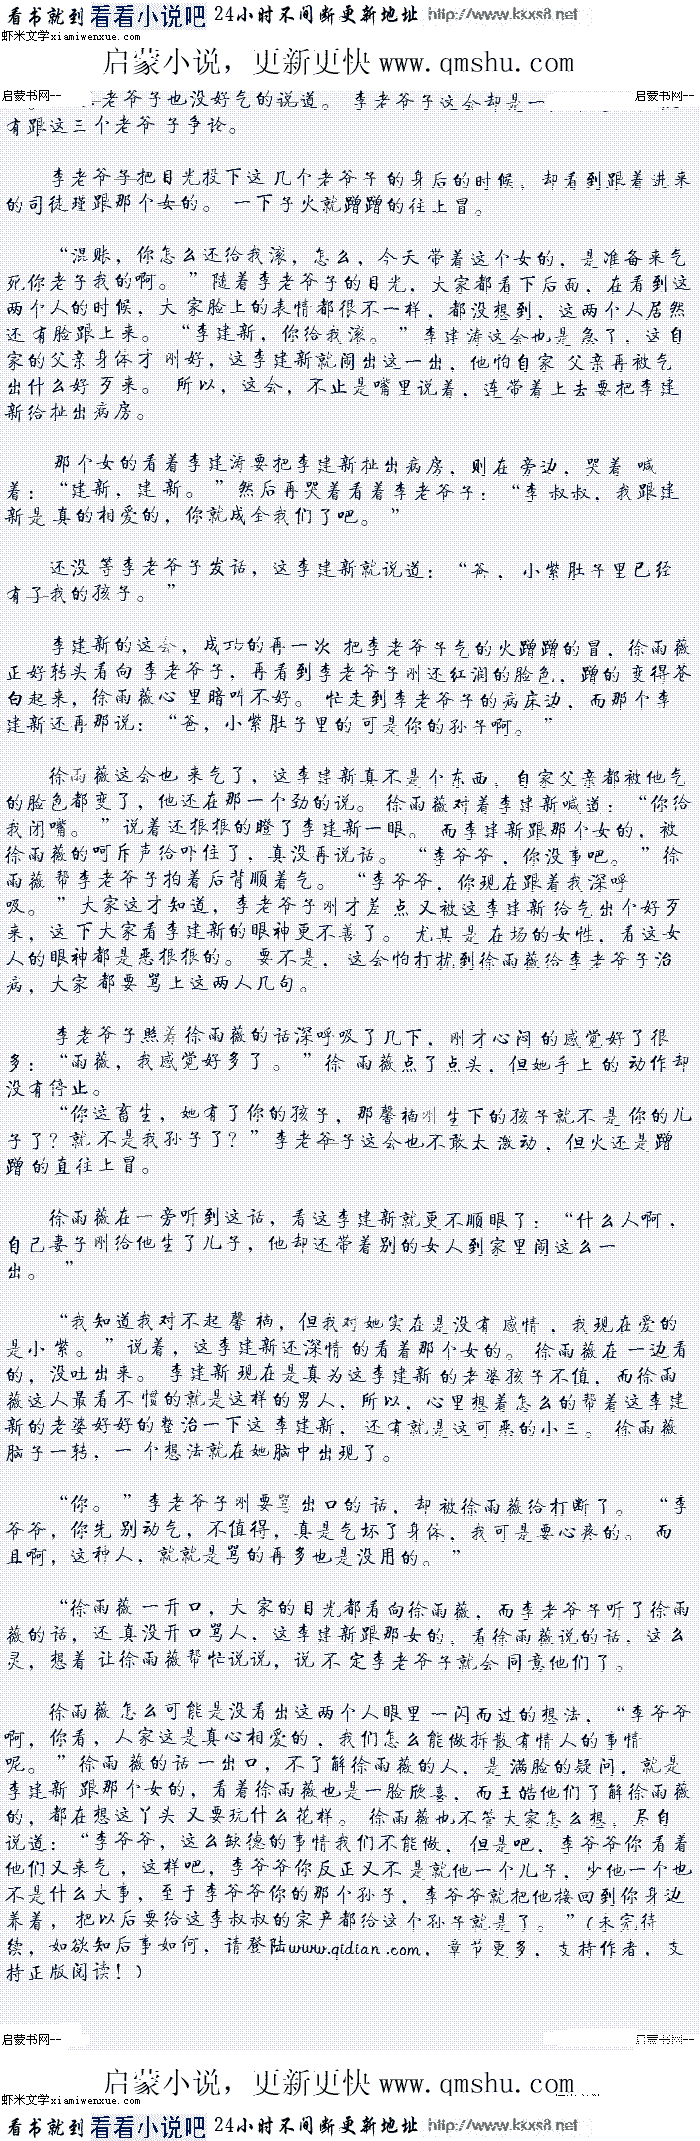 看书就到 看看小说吧 24小时不间断更新地址 http://www.kkxs8.net
虾米文学xiamiwenxue.com
启蒙小说，更新更快 www.qmshu.com
启蒙书网--
启蒙书网--
老爷子也没好气的说道。 李老爷子这会却是一
有跟这三个老爷子争论。
李老爷子把目光投下这几个老爷子的身后的时候，却看到跟着进来
的司徒瑾跟那个女的。 一下子火就蹭蹭的往上冒。
“混账，你怎么还给我滚，怎么，今天带着这个女的，是准备来气
死你老子我的啊。 ”随着李老爷子的目光，大家都看下后面，在看到这
两个人的时候，大家脸上的表情都很不一样，都没想到，这两个人居然
还有脸跟上来。 “李建新，你给我滚。 ” 李建涛这会也是急了，这自
家的父亲身体才刚好，这李建新就闹出这一出，他怕自家 父亲再被气
出什么好歹来。 所以，这会，不止是嘴里说着，连带着上去要把李建
新给扯出病房。
那个女的看着李建涛要把李建新扯出病房，则在旁边，哭着 喊
着：“建新，建新。 ”然后再哭着看着李老爷子：“李叔叔，我跟建
新是真的相爱的，你就成全我们了吧。 ”
还没等李老爷子发话，这李建新就说道：“爸，小紫肚子里已经
有了我的孩子。 ”
李建新的这会，成功的再一次 把李老爷子气的火蹭蹭的冒，徐雨薇
正好转头看向 李老爷子，再看到李老爷子刚还红润的脸色，蹭的 变得苍
白起来，徐雨薇心 里暗叫不好。 忙走到李老爷子的病床边，而那个李
建新还再那说：“爸，小紫肚子里的可是你的孙子啊。 ”
徐雨薇这会也 来气了，这李建新真不是个东西，自家父亲都被他气
的脸色都变了，他还在那一个劲的说。 徐雨薇对着李建新喊道：“你给
我闭嘴。 ” 说着还狠狠的瞪了李建新一眼。 而李建新跟那个女的，被
徐雨薇的呵斥声给吓住了，真没再说话。 “李爷爷，你没事吧。 ” 徐
雨薇 帮李老爷子拍着后背顺着气。 “李爷爷，你现在跟着我深呼
吸。 ” 大家这才知道，李老爷子刚才差点又被这李建新给气出个好歹
来，这下大家看李建新的眼神更不善了。 尤其是 在场的女性，看这女
人的眼神都是恶狠狠的。 要不是，这会怕打扰到徐雨薇给李老爷子治
病，大家都要骂上这两人几句。
李老爷子照着徐雨薇的话深呼吸了几下，刚才心闷的感觉好了很
多：“雨薇，我感觉好多了。 ” 徐 雨薇点了点头，但她手上的动作却
没有停止。
“你这畜生，她有了你的孩子，那馨楠刚生下的孩子就不是你的儿
子了？就不是我孙子了？” 李老爷子这会也不敢太激动，但火还是蹭
蹭的直往上冒。
徐雨薇在一旁听到这话，看这李建新就更不顺眼了：“什么人啊，
自己妻子刚给他生了儿子，他却还带着别的女人到家里闹这么一
出。 ”
“我知道我对不起馨楠，但我对她实在是没有感情，我现在爱的
是小紫。 ” 说着，这李建新还深情的看着那个女的。 徐雨薇在一边看
的，没吐出来。 李建新现在是真为这李建新的老婆孩子不值，而徐雨
薇这人最看不惯的就是这样的男人，所以，心里想着怎么的帮着这李建
新的老婆好好的整治一下这李建新，还有就是这可恶的小三。 徐雨薇
脑子一转，一个想法就在她脑中出现了。
“你。 ” 李老爷子刚要骂出口的话，却被徐雨薇给打断了。 “李
爷爷，你先别动气，不值得，真是气坏了身体，我可是要心疼的。 而
且啊，这种人，就就是骂的再多也是没用的。 ”
“徐雨薇一开口，大家的目光都看向徐雨薇，而李老爷子听了徐雨
薇的话，还真没开口骂人，这李建新跟那女的，看徐雨薇说的话，这么
灵，想着让徐雨薇帮忙说说，说不定李老爷子就会同意他们了。
徐雨薇怎么可能是没看出这两个人眼里一闪而过的想法，“李爷爷
啊，你看，人家这是真心相爱的，我们怎么能做拆散有情人的事情
呢。 ” 徐雨薇的话一出口，不了解徐雨薇的人，是满脸的疑问，就是
李建新 跟那个女的，看着徐雨薇也是一脸欣喜，而王皓他们了解徐雨薇
的，都在想这丫头又要玩什么花样。 徐雨薇也不管大家怎么想，尽自
说道：“李爷爷，这么缺德的事情我们不能做，但是吧，李爷爷你看着
他们又来气，这样吧，李爷爷你反正又不是就他一个儿子，少他一个也
不是什么大事，至于李爷爷你的那个孙子，李爷爷就把他接回到你身边
养着，把以后要给这李叔叔的家产都给这个孙子就是了。 ”（未完待
续，如欲知后事如何，请登陆www.qidian.com，章节更多，支持作者，支
持正版阅读！）
启蒙书网--
启蒙书网--
启蒙小说，更新更快 www.qmshu.com
虾米文学xiamiwenxue.com
看书就到 看看小说吧 24小时不间断更新地址 http://www.kkxs8.net